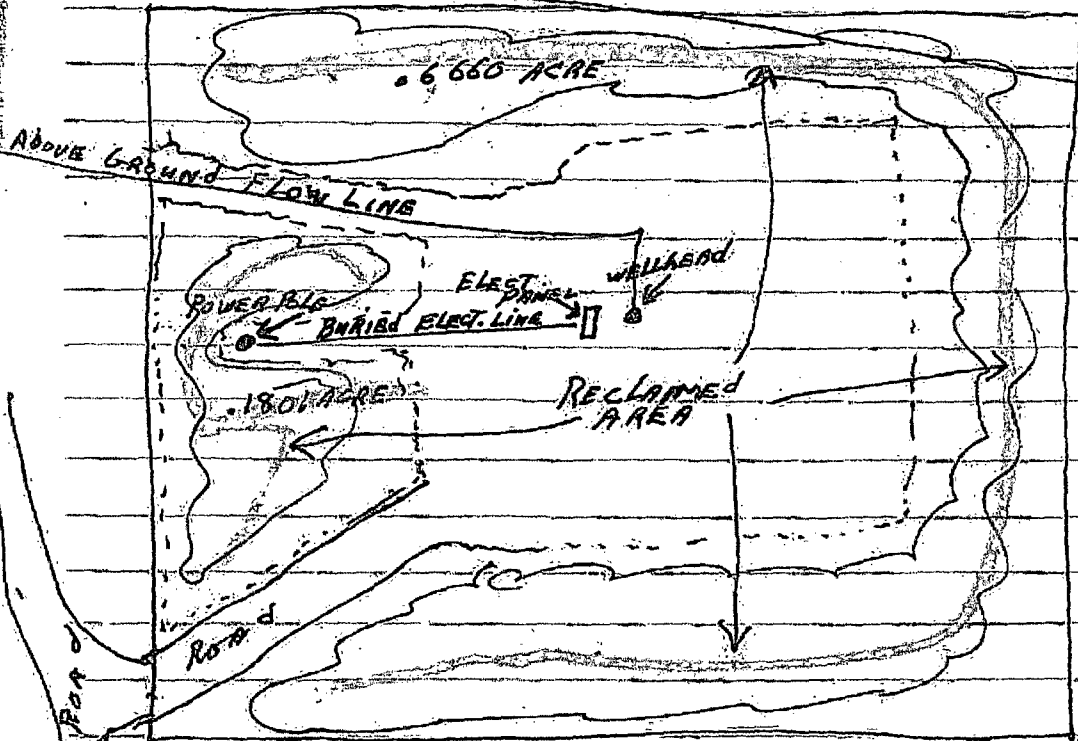 .6660 ACRE
ABOVE GROUNd FLOW LINE
WELLHEAD
ELECT.
PANEL
POWER POLE
BURIEd ELECT. LINE
.1801 ACRE
RECLAIMEd
AREA
ROAd
ROAd